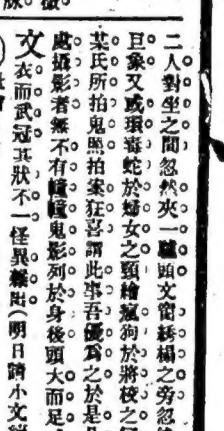 二人對坐之間忽然夾一驢頭文窗綉榻之旁忽
巨象又或環毒蛇於婦女之頸繪瘋狗於將校之
某氏所拍鬼照拍案狂喜謂此事吾優爲之於是
處攝影者無不有幢幢鬼影列於身後頭大而足
文衣而武冠其狀不一怪異雜出(明日請小文